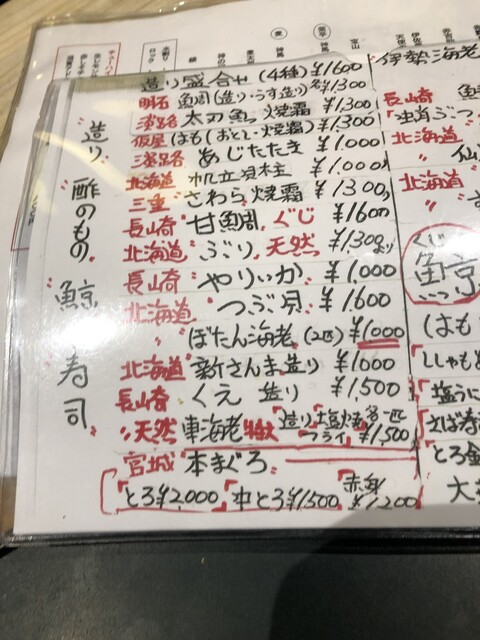 造り 酢のもの 鯨 寿司
造り盛合せ(4種) ¥1600
明石 魚周(造り・うす造り)各¥1300
淡路 太刀魚 焼霜 ¥1300
仮屋 はも(おとし・焼霜) ¥1,300
淡路 あじたたき ¥1,000
北海道 帆立貝柱 ¥1,000
三重 さわら 焼霜 ¥1300
長崎 甘鯛 ぐじ ¥1600
北海道 ぶり 天然 ¥1,300
長崎 やりいか ¥1,000
北海道 つぶ貝 ¥1,600
〃 ぼたん海老(2匹) ¥1000
北海道 新さんま造り ¥1000
長崎 くえ 造り ¥1,500
〃 天然 車海老 特大 造り・塩焼 各一匹
フライ ¥1,500
宮城 本まぐろ
とろ¥2,000 中とろ¥1,500 赤身 ¥1200
伊勢海老
長崎
北海道
北海道
くじ
(はも
ししゃも
塩うに
そば寿
とろ金
大